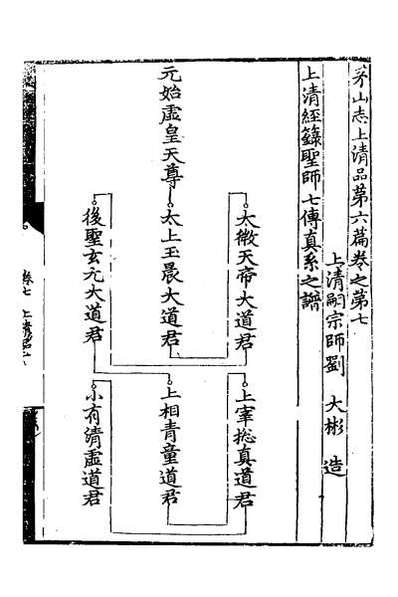 茅山志上清品第六篇卷之第七
上清嗣宗師劉 大彬 造
上清經籙聖師七傳真系之譜
元始虛皇天尊
太微天帝大道君
太上玉晨大道君
後聖玄元大道君
上宰捴真道君
上相青童道君
小有清虛道君